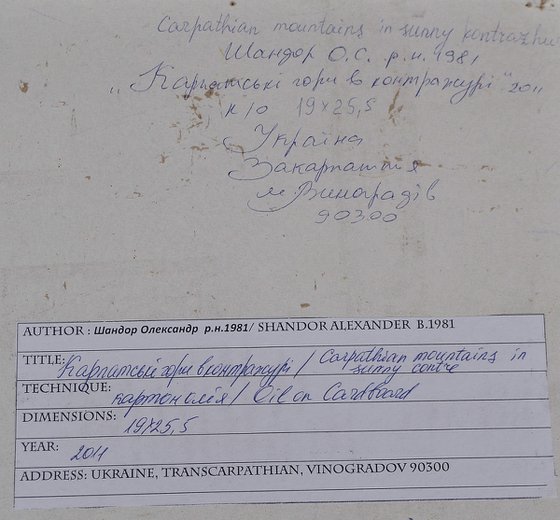 Carpathian mountains in sunny kontrazhu
Шандор О.С. р.н. 1981
„Карпатські гори в контражурі" 2011
к/о 19×25,5
Україна
Закарпаття
м. Виноградів
90300
AUTHOR : Шандор Олександр р.н.1981/ SHANDOR ALEXANDER B.1981
TITLE: Карпатські гори в контражурі / Carpathian mountains in
sunny contre
TECHNIQUE: картон олія / Oil on Cardboard
DIMENSIONS: 19×25,5
YEAR: 2011
ADDRESS: UKRAINE, TRANSCARPATHIAN, VINOGRADOV 90300